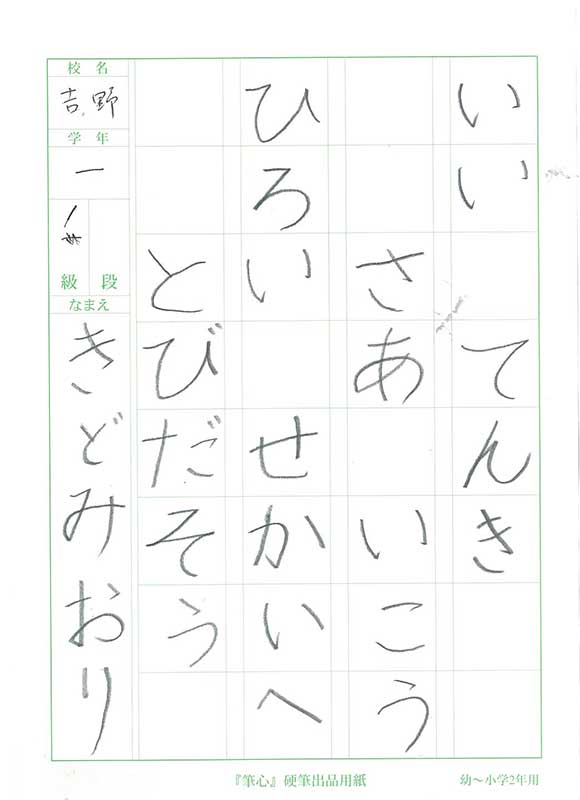 いい　てんき
さあ　いこう
ひろい　せかいへ
とびだそう
校名
吉野
学年
一
級　段
なまえ
きどみおり
『筆心』硬筆出品用紙
幼〜小学2年用